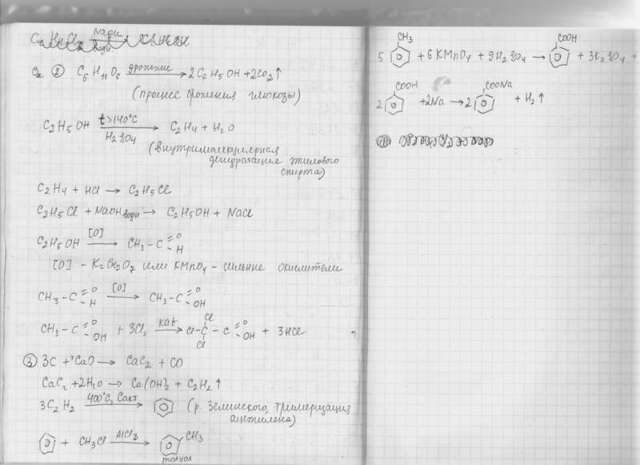 ② C₆H₁₂O₆ →(дрожжи) 2C₂H₅OH + 2CO₂↑
(процесс брожения глюкозы)
C₂H₅OH →(t>140°C, H₂SO₄) C₂H₄ + H₂O
(внутримолекулярная
дегидратация этилового
спирта)
C₂H₄ + HCl → C₂H₅Cl
C₂H₅Cl + NaOH водн → C₂H₅OH + NaCl
C₂H₅OH →([O]) CH₃-C=O H
[O] - K₂Cr₂O₇ или KMnO₄ - сильные окислители
CH₃-C=O H →([O]) CH₃-C=O OH
CH₃-C=O OH + 3Cl₂ →(kat) Cl-C-C=O OH Cl Cl + 3HCl
③ 3C + CaO → CaC₂ + CO
CaC₂ + 2H₂O → Ca(OH)₂ + C₂H₂↑
3C₂H₂ →(400°C, Cакт) (р. Зелинского, тримеризация
ацетилена)
+ CH₃Cl →(AlCl₃) CH₃
толуол
5 CH₃ + 6KMnO₄ + 9H₂SO₄ → COOH + 3K₂SO₄ +
2 COOH + 2Na → 2 COONa + H₂↑